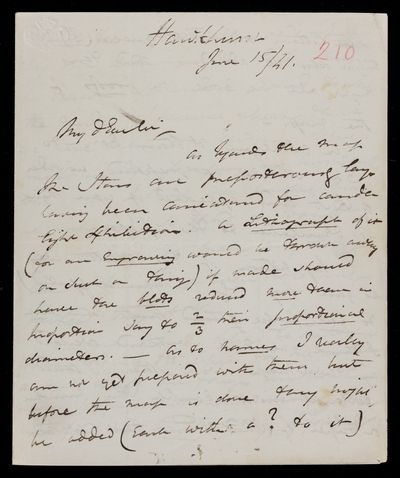 Hawkhurst
June 15/41. 210
My dear Sir
as regards the map
the Stars are preposterously large
having been caricatured for candle
light exhibition. A lithograph of it
(for an Engraving would be thrown away
on such a thing) if made should
have the blots reduced more than in
proportion say to 2/3 their proportional
diameters. — as to names I really
am not yet prepared with them but
before the map is done they might
be added (Each with a ? to it)